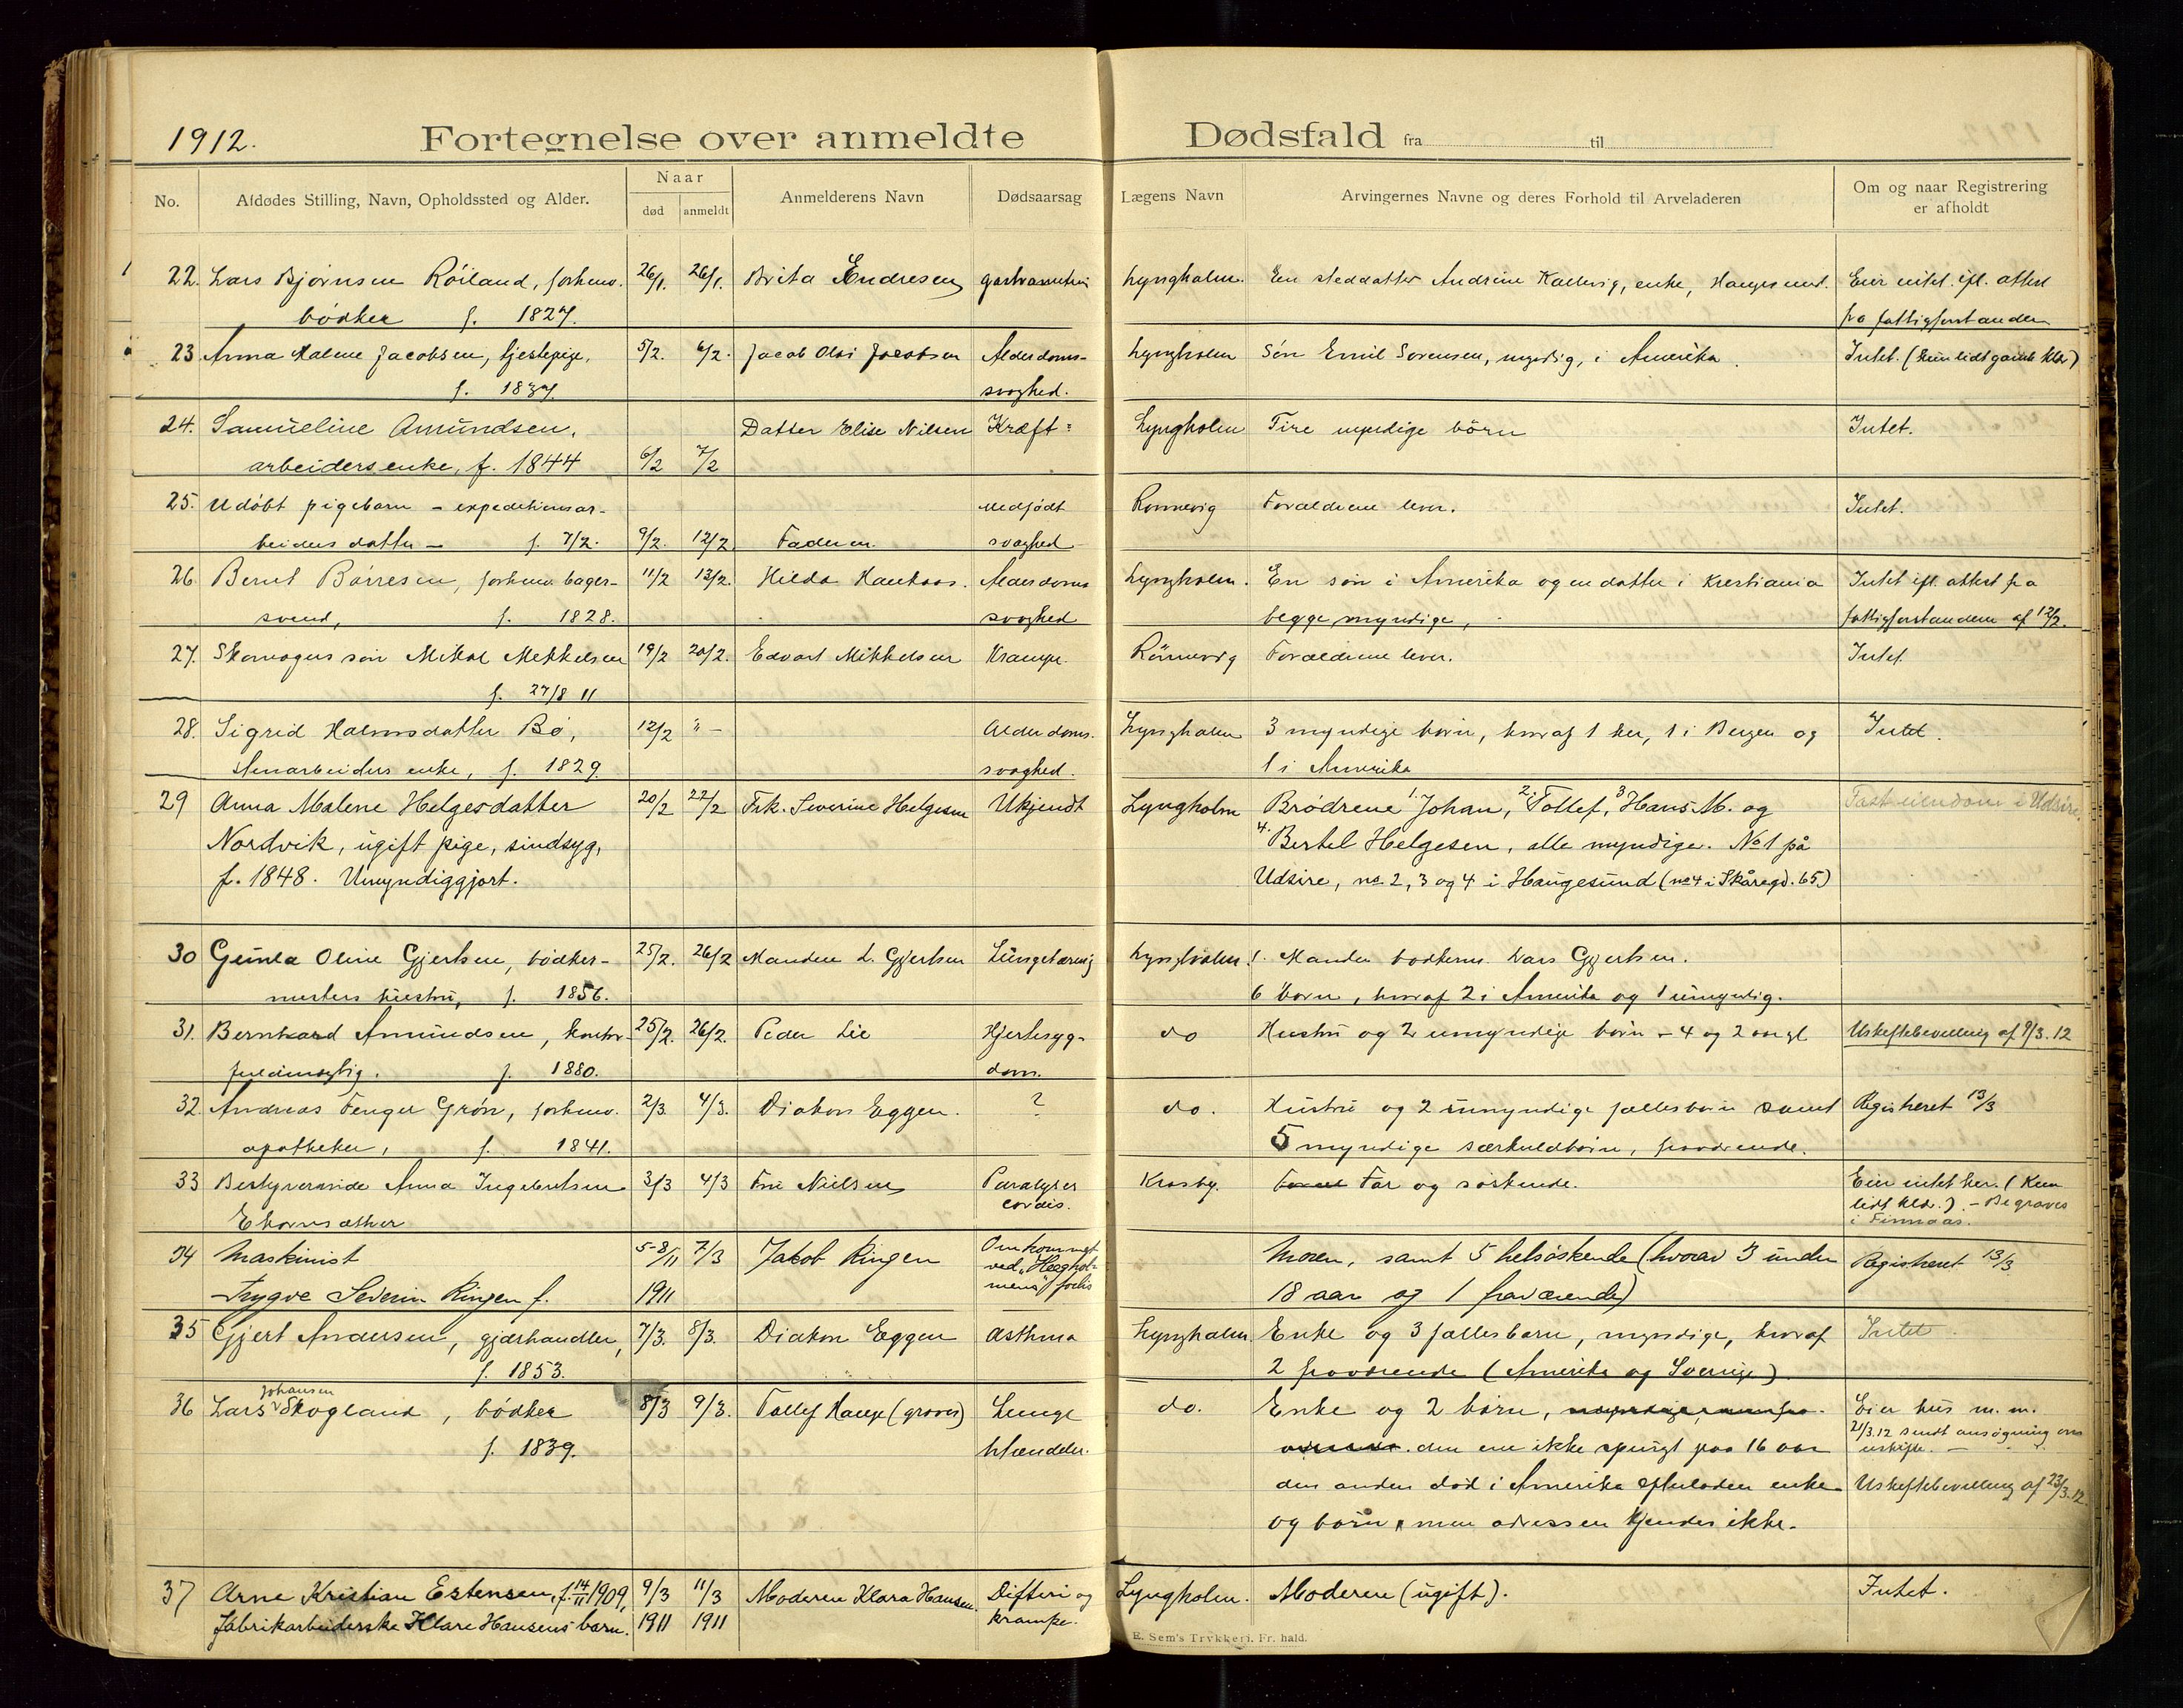 1912.
Fortegnelse over anmeldte Dødsfald fra til
No.
Afdødes Stilling, Navn, Opholdssted og Alder.
Naar
død anmeldt
Anmelderens Navn
Dødsaarsag
Lægens Navn
Arvingernes Navne og deres Forhold til Arveladeren
Om og naar Registrering
er afholdt
22. Lars Bjørnsen Röiland, forhenv. 26/1. 26/1. Brita Endresen Lyngholm. En steddatter Andrine Kallevig, enke, Haugesund. Eier intet. ifl. attest
bödker f. 1827. fra fattigforstanderen
23 Anna Malene Jacobsen, tjenestepige, 5/2. 6/2. Jacob Olai Jacobsen Alderdoms- Lyngholm Sön Emil Sörensen, myndig, i Amerika. Intet. (kun lidt gamle klær)
f. 1837. svaghed.
24. Samueline Amundsen, Datter Elise Nilsen Kræft: Lyngholm Fire myndige börn Intet.
arbeidersenke, f. 1844 6/2 7/2
25. Udöbt pigebarn - expeditionsar- Medfödt Rönnevig Forældrene lever. Intet.
beiders datter - f. 7/2. 9/2. 12/2 Faderen. svaghed
26. Bernt Börresen, forhenv. bager- 11/2 13/2. Hilda Alderdoms Lyngholm. En sön i Amerika og en datter i Kristiania Intet ifl. attest fra
svend, f. 1828. svaghed begge myndige, fattigforstanderen af 12/2.
27. Skomagers sön Mikal Mekkelsen 19/2 20/2. Edvart Mikkelsen Krampe. Rönnevig Forældrene lever. Intet.
f. 27/8 11
28. Sigrid Halvorsdatter Bö, 12/2 " - Alderdoms. Lyngholm 3 myndige börn, hvoraf 1 her, 1 i Bergen og Intet.
stenarbeiders enke, f. 1829. svaghed. 1 i Amerika
29 Anna Malene Helgesdatter 20/2 22/2 Frk. Severine Helgesen Ukjendt Lyngholm Brödrene 1. Johan, 2. Tollef, 3 Hans M. og Fast eiendom i Udsire.
Nordvik, ugift pige, sindsyg, 4. Bertel Helgesen, alle myndige. No 1 på
f. 1848. Umyndiggjort. Udsire, no 2, 3 og 4 i Haugesund (no 4 i Skåregd. 65)
30 Gunla Oline Gjertsen, bödker- 25/2. 26/2 Manden L. Gjertsen Lungetæring Lyngholm. 1. Manden bödkerm. Lars Gjertsen.
mesters hustru, f. 1856. 6 börn, hvoraf 2 i Amerika og 1 umyndig.
31. Bernhard Amundsen, kontor- 25/2. 26/2. Peder Lie Hjertesyg- do Hustru og 2 umyndige börn - 4 og 2 aar gl Uskiftebevilling af 9/3. 12
fuldmægtig. f. 1880. dom.
32. Andreas Fenger Grön, forhenv. 2/3 4/3. Diakon Eggen. ? do. Hustru og 2 umyndige fællesbörn samt Registreret 13/3
apotheker, f. 1841. 5 myndige særkuldbörn, fraværende.
33 Bestyrerinde Anna Ingebretsen 3/3 4/3 Fru Nielsen Paralyses Krosby. Far og söskende. Eier intet her. (Kun
cordis. lidt klær.). - Begraves
i Finnaas.
34 Maskinist 5-8/11 7/3 Jakob Ringen Omkommet Moren, samt 5 helsöskende (hvorav 3 under Registreret 13/3
Trygve Severin Ringen f. 1911 ved "Hegholmens" forlis 18 aar og 1 fraværende)
35 Gjert Andersen, gjærhandler, 7/3. 8/3. Diakon Eggen Asthma Lyngholm Enke og 3 fællesbarn, myndige, hvoraf Intet.
f. 1853. 2 fraværende (Amerika og Sverige)
36 Lars Johansen Skogland, bödker 8/3 9/3. Tollef Hauge (graver) Lunge do. Enke og 2 börn, Eier hus m. m.
f. 1839. blændelse. den ene ikke spurgt paa 16 aar 21/3.12 sendt ansögning om uskifte.
den anden död i Amerika efterladen enke Uskiftebevilling af 23/3.12.
og börn, men adressen kjendes ikke.
37 Arne Kristian Estensen, f. 14/11 1909, 9/3 11/3 Moderen Klara Hansen. Difteri og Lyngholm. Moderen (ugift). Intet.
fabrikarbeiderske Klara Hansens barn. 1911 1911 krampe.
E. Sem's Trykkeri, Fr. hald.